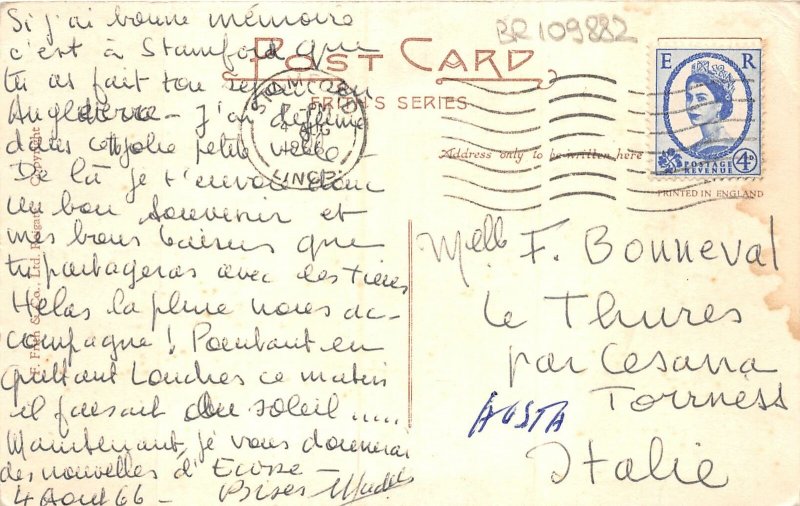 Si j'ai bonne mémoire
c'est à Stamford que
tu as fait ton en
Angleterre - J'ai
dans cette jolie petite ville -
De là je t'envoie donc
un bon souvenir et
mes bons baisers que
tu partageras avec les tiens
Hélas la pluie nous ac-
compagne ! Pourtant en
quittant Londres ce matin
il faisait du soleil .....
Maintenant je vous donnerai
des nouvelles d'Ecosse -
4 Août 66 - Bises
F. Frith & Co., Ltd. Reigate Copyright
BR109882
POST CARD
FRITH'S SERIES
STAMFORD
PM
4 AUG
1966
LINCS
Address only to be written here
E R
POSTAGE
REVENUE
4D
PRINTED IN ENGLAND
Melle F. Bonneval
Le Thures
par Cesana
Torrness
AOSTA
Italie